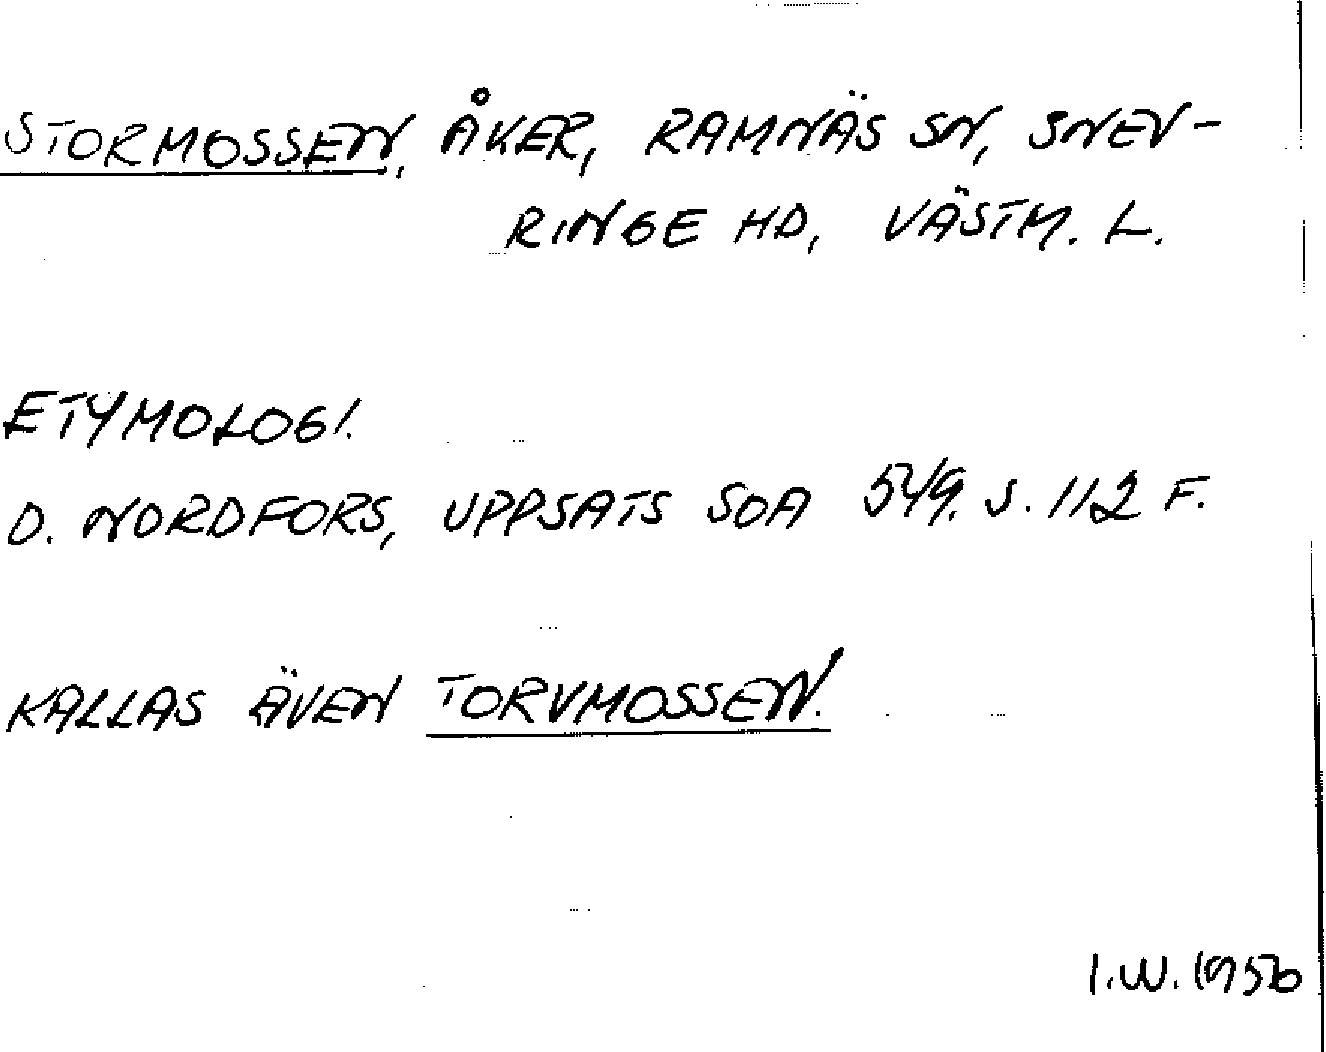 STORMOSSEN, ÅKER, RAMNÄS SN, SNEV-
RINGE HD, VÄSTM. L.
ETYMOLOGI.
D. NORDFORS, UPPSATS SOA 549. S. 112 F.
KALLAS ÄVEN TORVMOSSEN.
I.W. 1956